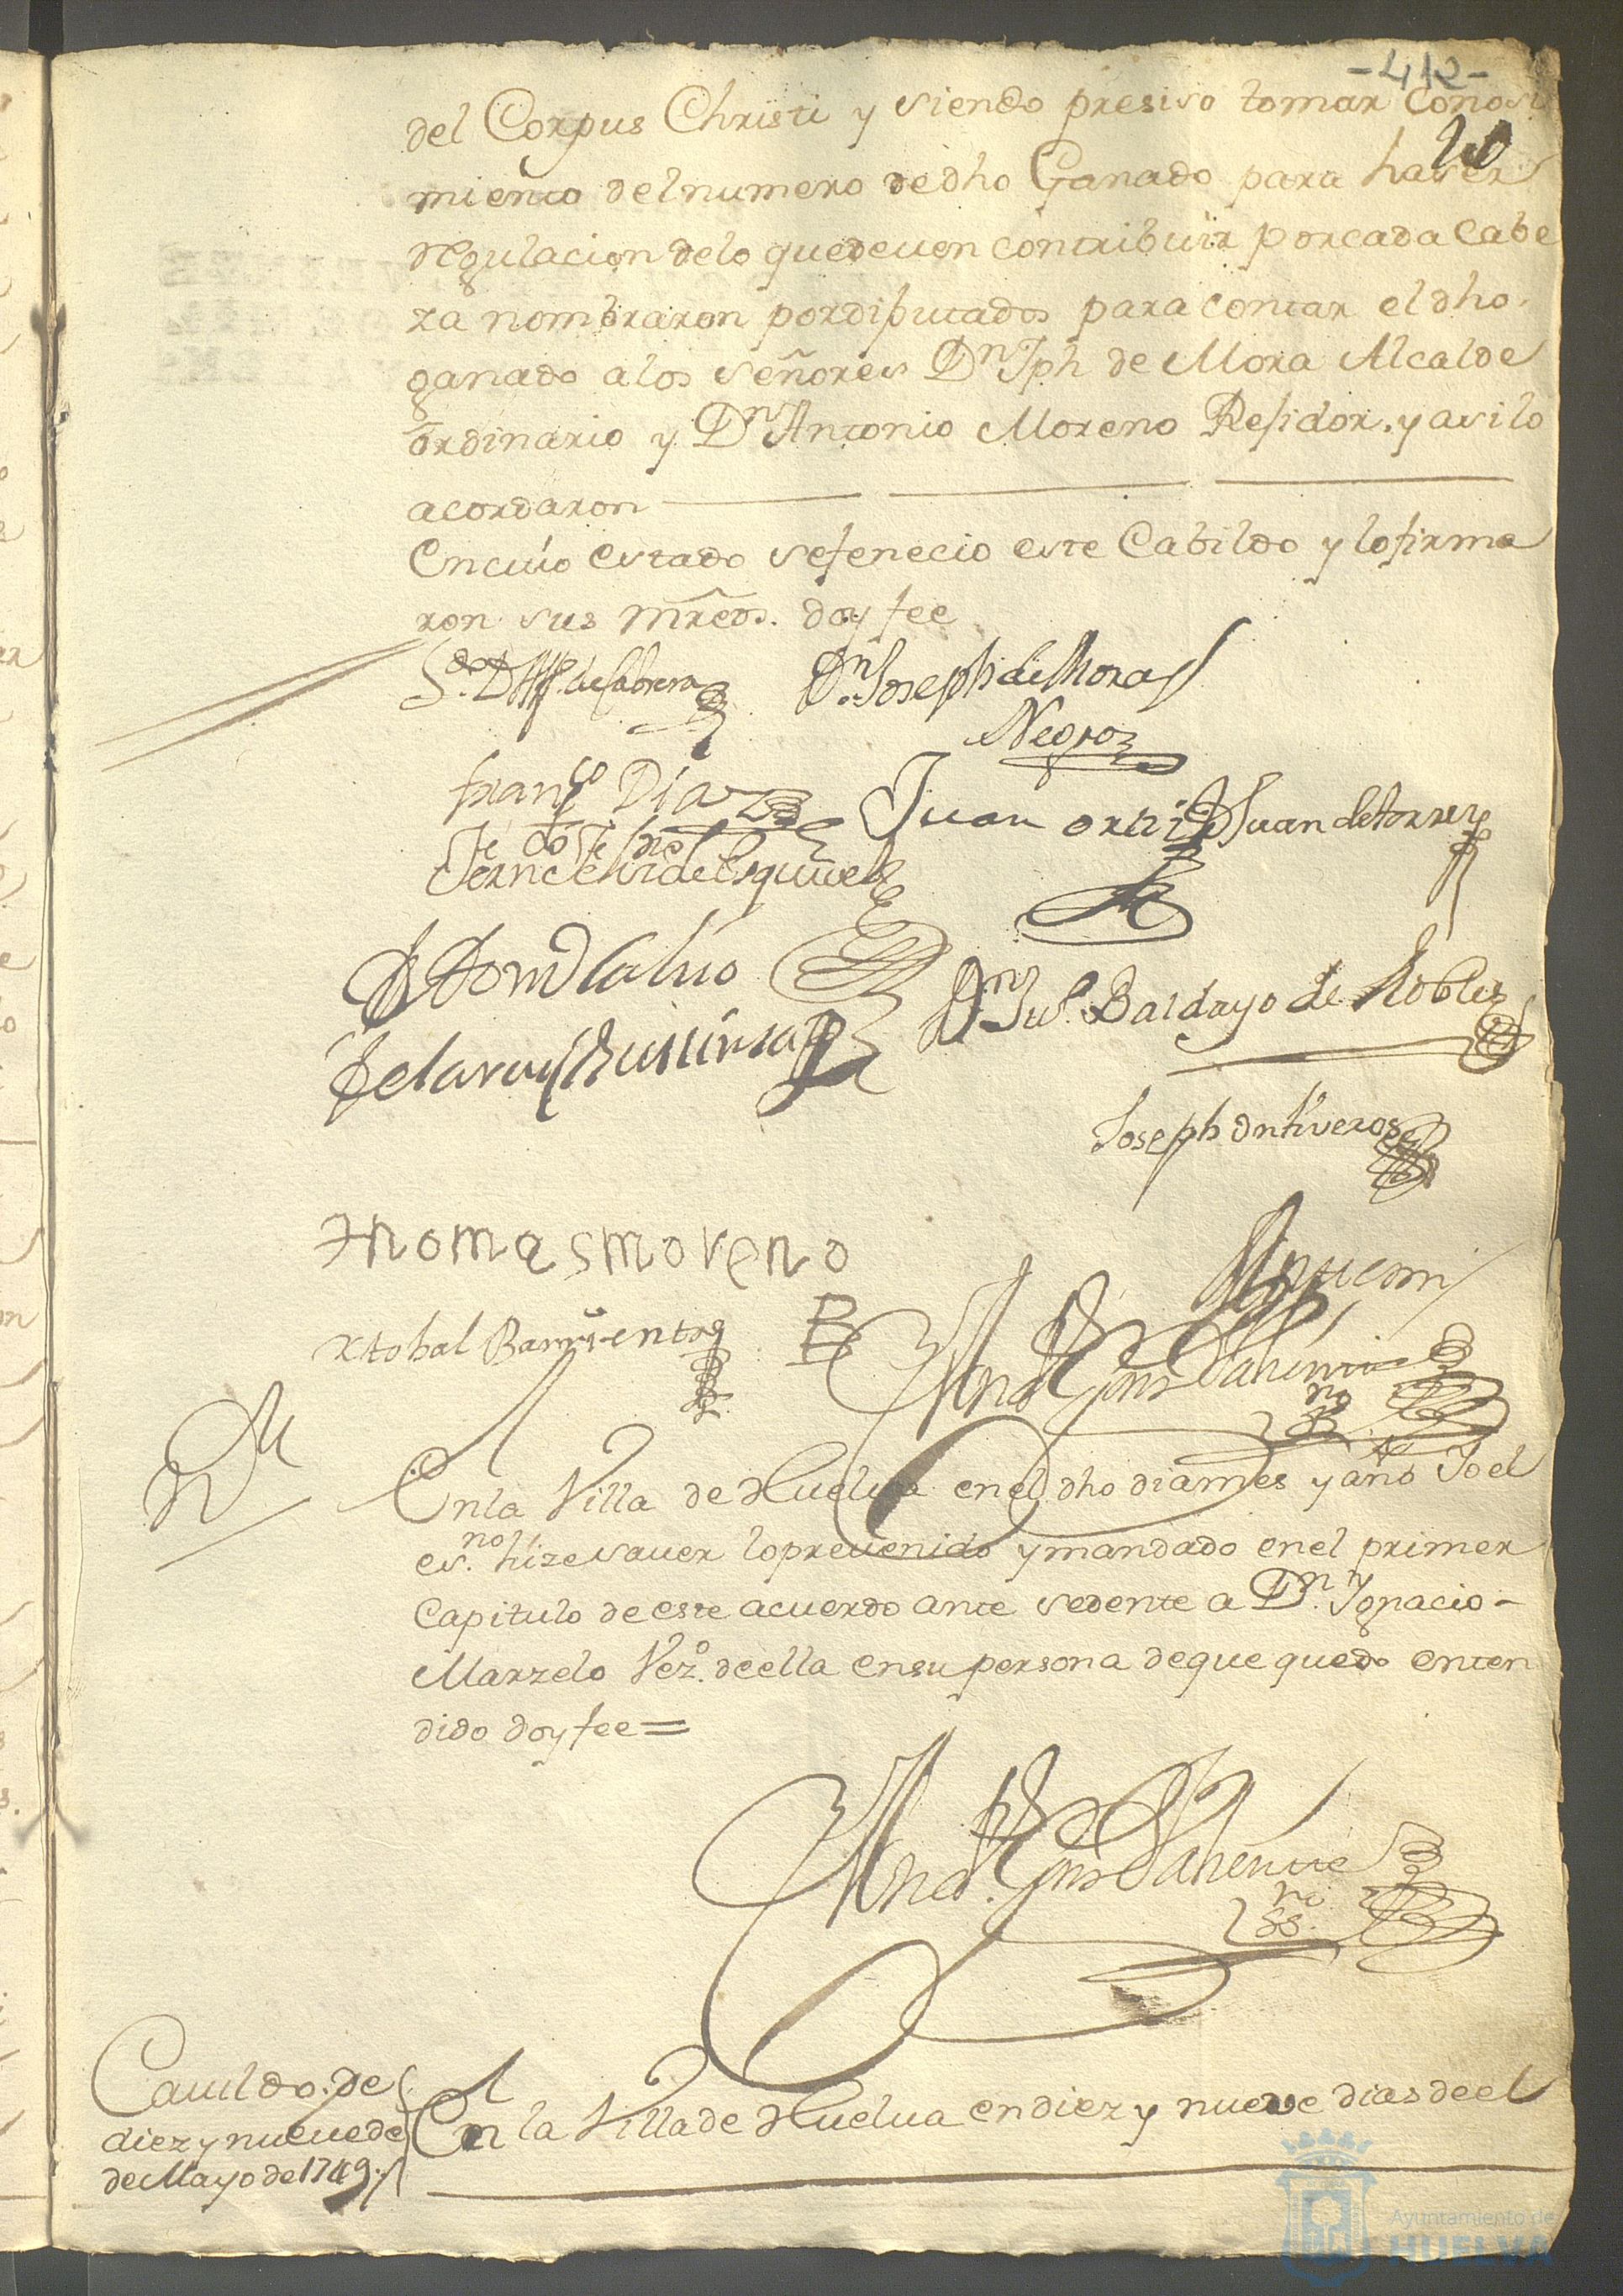 -412-
20
del Corpus Christi y siendo presiso tomar conosi
miento del numero de dho Ganado para haver
regulacion de lo que deven contribuir por cada Cabe
za nombraron por diputados para contar el dho.
ganado a los señores Dn Jph de Mora Alcalde
ordinario y Dn Antonio Moreno Residor. y asi lo
acordaron
En cuio estado se fenecio este Cabildo y lo firma
ron sus mrcds. doy fee
de Cabrera
Dn Joseph de Mora
Negro
Franco Diaz
Juan ortiz
Juan de torres
de Esquivel
Dn Juo. Baldayo de Robles
Joseph Ontiveros
Thomas moreno
Xtobal Barrientos
Ante mi
En la Villa de Huelva en el dho dia mes y año Yo el
es.no hize saver lo prevenido y mandado en el primer
Capitulo de este acuerdo ante sedente a Dn. Ygnacio -
Marzelo Vez.o de ella en su persona de que quedo enten
dido doy fee =
Cavildo. de
diez y nueve de
de Mayo de 1749.
En la Villa de Huelua en diez y nueve dias de el
Ayuntamiento de
HUELVA